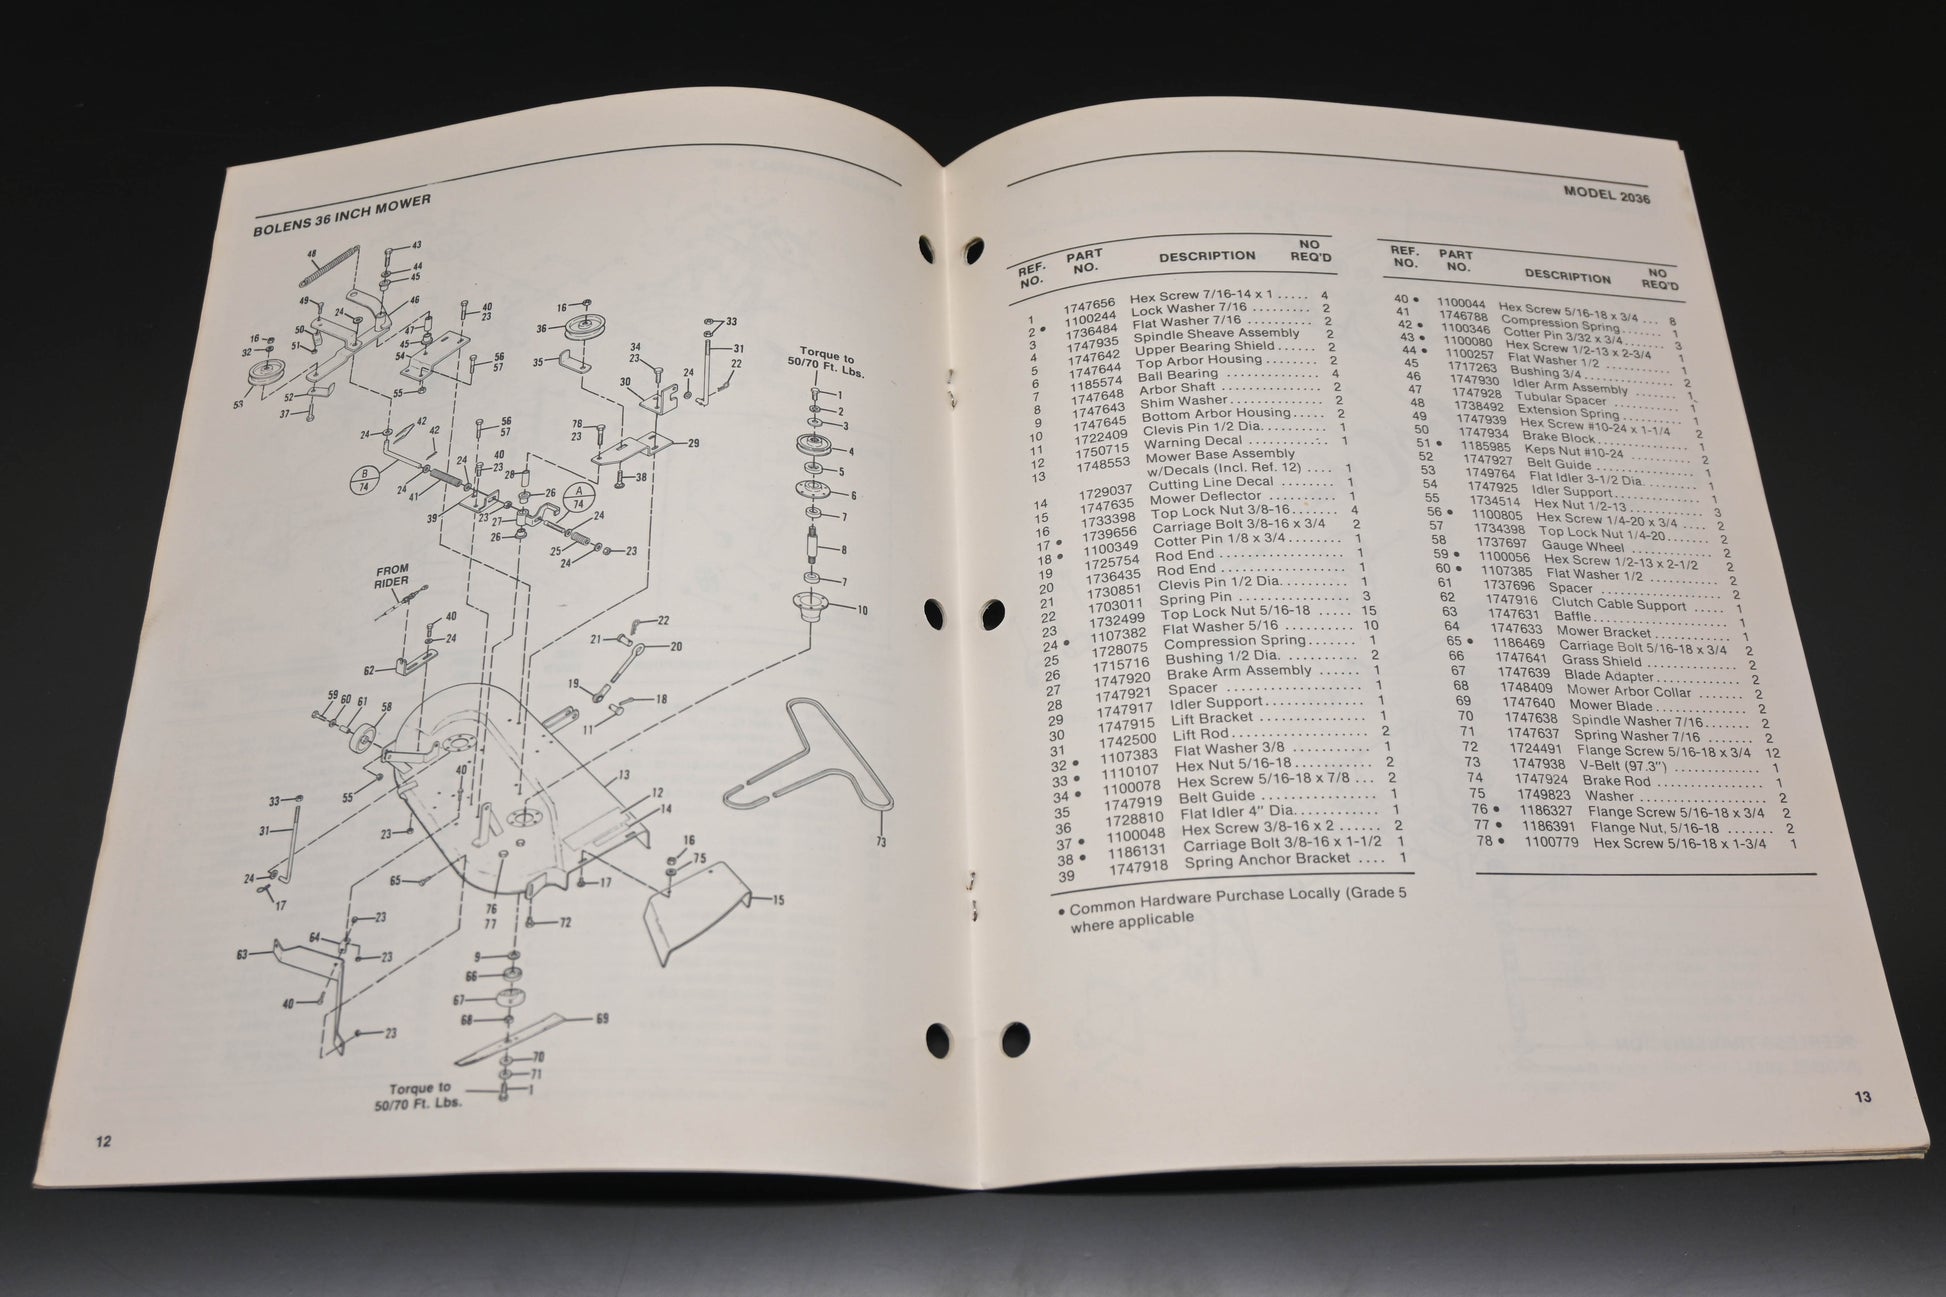 BOLENS 36 INCH MOWER
48
43
44
45
46
49
24
50
47
40
23
16
32
51
45
54
56
57
53
52
55
37
16
36
35
34
23
24
33
31
22
30
78
23
29
38
Torque to
50/70 Ft. Lbs.
1
2
3
4
5
6
7
8
7
10
24
42
42
56
57
40
23
B
74
24
24
41
39
28
26
A
74
23
27
26
24
25
24
23
FROM
RIDER
40
24
62
22
21
20
19
18
11
59
60
61
58
55
40
13
12
14
33
31
23
24
17
65
16
75
17
15
76
77
72
73
23
64
23
63
40
23
9
66
67
68
69
70
71
1
Torque to
50/70 Ft. Lbs.
12
MODEL 2036
REF. NO. PART NO. DESCRIPTION NO REQ'D
1 1747656 Hex Screw 7/16-14 x 1 ..... 4
2 • 1100244 Lock Washer 7/16 ......... 2
3 1736484 Flat Washer 7/16 .......... 2
4 1747935 Spindle Sheave Assembly 2
5 1747642 Upper Bearing Shield ...... 2
6 1747644 Top Arbor Housing ........ 2
7 1185574 Ball Bearing .............. 4
8 1747648 Arbor Shaft ............... 2
9 1747643 Shim Washer .............. 2
10 1747645 Bottom Arbor Housing ..... 2
11 1722409 Clevis Pin 1/2 Dia. ......... 1
12 1750715 Warning Decal ............ 1
13 1748553 Mower Base Assembly
w/Decals (Incl. Ref. 12) .... 1
14 1729037 Cutting Line Decal ........ 1
15 1747635 Mower Deflector .......... 1
16 1733398 Top Lock Nut 3/8-16 ....... 4
17 • 1739656 Carriage Bolt 3/8-16 x 3/4 2
18 • 1100349 Cotter Pin 1/8 x 3/4 ........ 1
19 1725754 Rod End .................. 1
20 1736435 Rod End .................. 1
21 1730851 Clevis Pin 1/2 Dia. ......... 1
22 1703011 Spring Pin ................ 3
23 1732499 Top Lock Nut 5/16-18 ..... 15
24 • 1107382 Flat Washer 5/16 .......... 10
25 1728075 Compression Spring ....... 1
26 1715716 Bushing 1/2 Dia. .......... 2
27 1747920 Brake Arm Assembly ...... 1
28 1747921 Spacer ................... 1
29 1747917 Idler Support .............. 1
30 1747915 Lift Bracket ............... 1
31 1742500 Lift Rod ................... 2
32 • 1107383 Flat Washer 3/8 ........... 1
33 • 1110107 Hex Nut 5/16-18 ........... 2
34 • 1100078 Hex Screw 5/16-18 x 7/8 ... 2
35 1747919 Belt Guide ................ 1
36 1728810 Flat Idler 4" Dia. ........... 1
37 • 1100048 Hex Screw 3/8-16 x 2 ...... 2
38 • 1186131 Carriage Bolt 3/8-16 x 1-1/2 1
39 1747918 Spring Anchor Bracket .... 1
• Common Hardware Purchase Locally (Grade 5
where applicable
REF. NO. PART NO. DESCRIPTION NO REQ'D
40 • 1100044 Hex Screw 5/16-18 x 3/4 ... 8
41 1746788 Compression Spring ....... 1
42 • 1100346 Cotter Pin 3/32 x 3/4 ....... 3
43 • 1100080 Hex Screw 1/2-13 x 2-3/4 1
44 • 1100257 Flat Washer 1/2 ........... 1
45 1717263 Bushing 3/4 ............... 2
46 1747930 Idler Arm Assembly ....... 1
47 1747928 Tubular Spacer ........... 1
48 1738492 Extension Spring .......... 1
49 1747939 Hex Screw #10-24 x 1-1/4 2
50 1747934 Brake Block ............... 1
51 • 1185985 Keps Nut #10-24 .......... 2
52 1747927 Belt Guide ................ 1
53 1749764 Flat Idler 3-1/2 Dia. ........ 1
54 1747925 Idler Support .............. 1
55 1734514 Hex Nut 1/2-13 ............ 3
56 • 1100805 Hex Screw 1/4-20 x 3/4 .... 2
57 1734398 Top Lock Nut 1/4-20 ....... 2
58 1737697 Gauge Wheel ............. 2
59 • 1100056 Hex Screw 1/2-13 x 2-1/2 2
60 • 1107385 Flat Washer 1/2 ........... 2
61 1737696 Spacer ................... 2
62 1747916 Clutch Cable Support ..... 1
63 1747631 Baffle ..................... 1
64 1747633 Mower Bracket ............ 1
65 • 1186469 Carriage Bolt 5/16-18 x 3/4 2
66 1747641 Grass Shield .............. 2
67 1747639 Blade Adapter ............. 2
68 1748409 Mower Arbor Collar ....... 2
69 1747640 Mower Blade .............. 2
70 1747638 Spindle Washer 7/16 ....... 2
71 1747637 Spring Washer 7/16 ....... 2
72 1724491 Flange Screw 5/16-18 x 3/4 12
73 1747938 V-Belt (97.3") ............ 1
74 1747924 Brake Rod ................ 1
75 1749823 Washer ................... 2
76 • 1186327 Flange Screw 5/16-18 x 3/4 2
77 • 1186391 Flange Nut, 5/16-18 ....... 2
78 • 1100779 Hex Screw 5/16-18 x 1-3/4 1
13